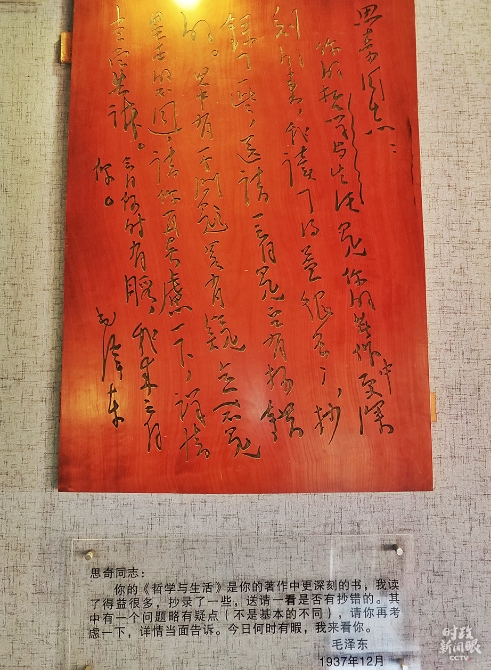 思奇同志：
你的哲学与生活是你的著作中更深
刻的书，我读了得益很多，抄
录了一些，送请一看是否有抄错
的。其中有一个问题略有疑点（不是
基本的不同），请你再考虑一下，详情
当面告诉。今日何时有暇，我来看
你。
毛泽东
思奇同志：
你的《哲学与生活》是你的著作中更深刻的书，我读
了得益很多，抄录了一些，送请一看是否有抄错的。其
中有一个问题略有疑点（不是基本的不同），请你再考
虑一下，详情当面告诉。今日何时有暇，我来看你。
毛泽东
1937年12月
时政
新闻眼
CCTV